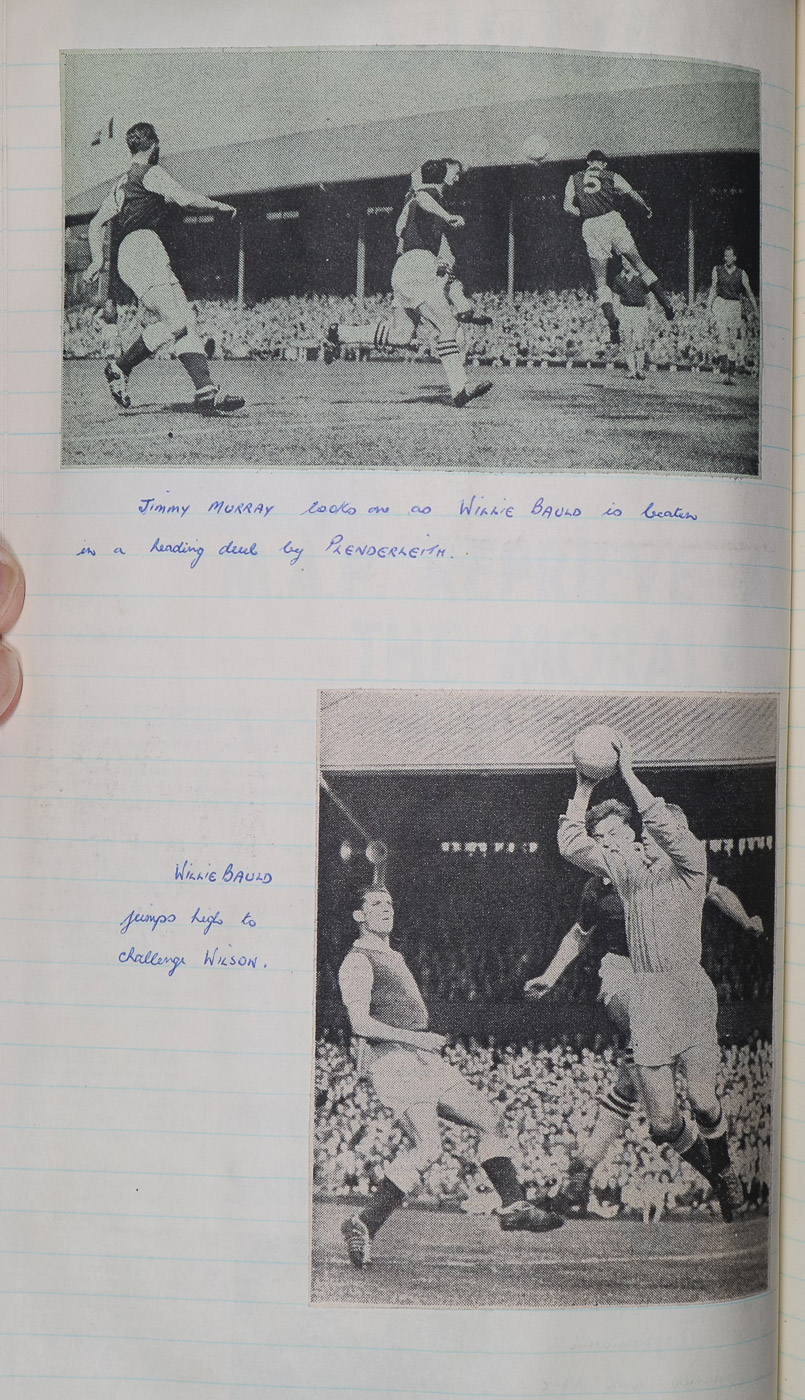 5
Jimmy MURRAY looks on as WILLIE BAULD is beaten
in a heading duel by PLENDERLEITH.
WILLIE BAULD
jumps high to
challenge WILSON.